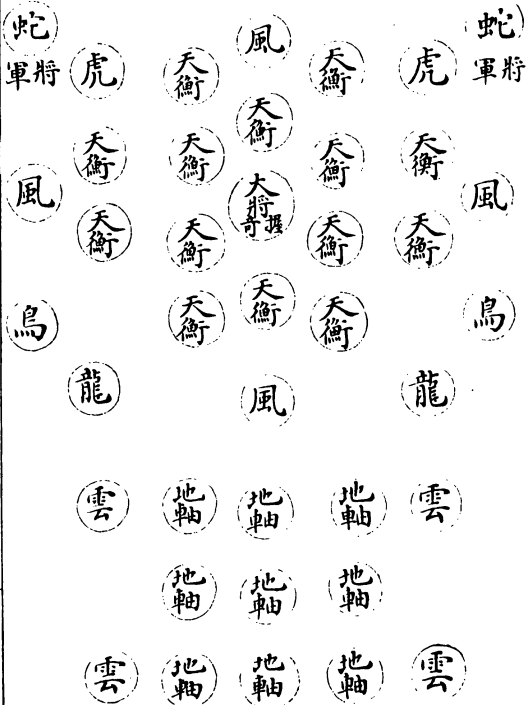 蛇 風 蛇
將軍 虎 天衡 天衡 虎 將軍
天衡
天衡 天衡 天衡 天衡
風 大將握奇 風
天衡 天衡 天衡 天衡
鳥 天衡 天衡 天衡 鳥
龍 風 龍
雲 地軸 地軸 地軸 雲
地軸 地軸 地軸
雲 地軸 地軸 地軸 雲